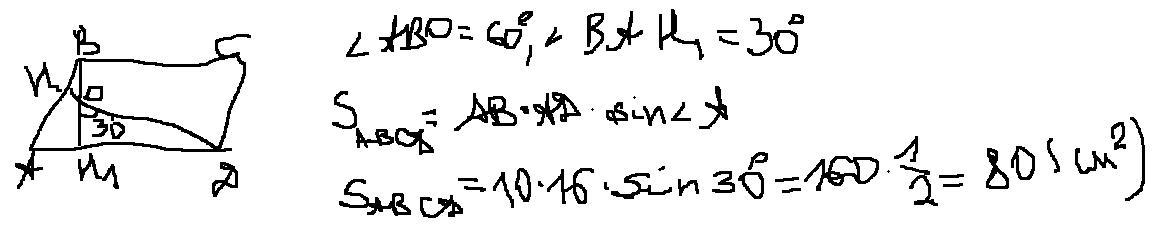 B C
H
O
30
A H₁ D
∠ABO = 60°, ∠BAH₁ = 30°
S_ABCD = AB·AD·sin∠A
S_ABCD = 10·16·sin30° = 160·1/2 = 80 (cm²)